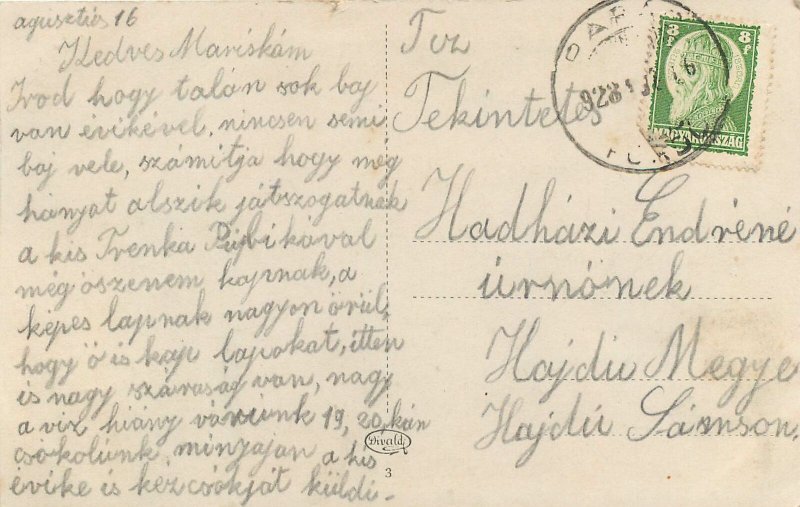 agusztús 16
Kedves Mariskám
Irod hogy talán sok baj
van évikével, nincsen semi
baj vele, számitja hogy még
hányat alszik játszogatnak
a kis Irenka
még öszenem kapnak, a
képes lapnak nagyon örül,
hogy ő is kap lapokat, itten
is nagy száraság van, nagy
a viz hiány várunk 19, 20.kán
csókolunk minyajan a kis
évike is kézcsókját küldi-
Divald
3
8f 8f
MAGYARORSZÁG
Tekintetes
Hadházi Endréné
úrnőnek
Hajdu Megye
Hajdú Sámson.